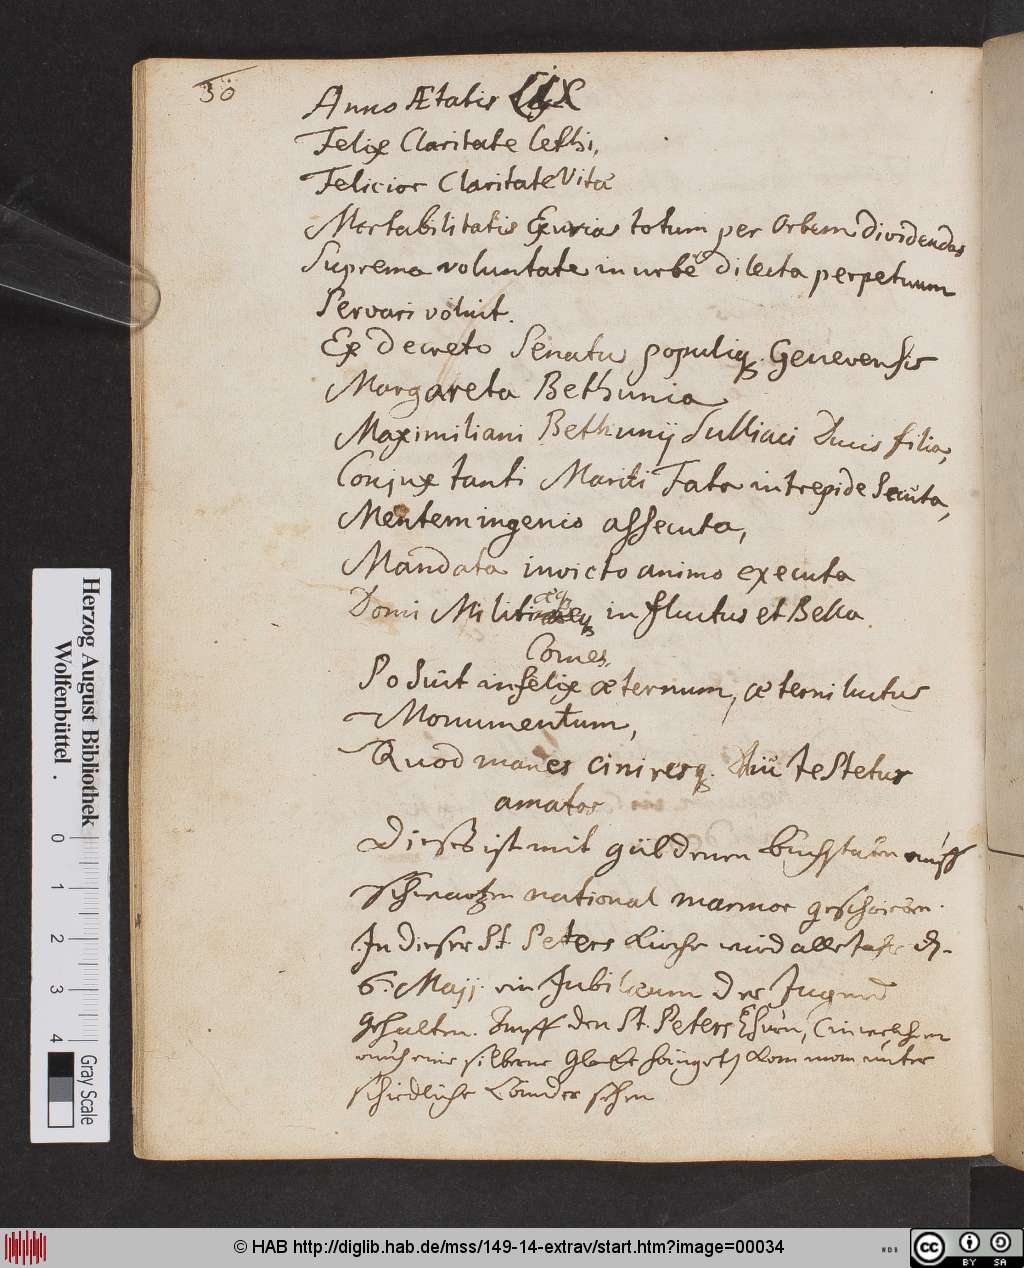 30
Anno Ætatis LIX
Felix Claritate Lethi,
Felicior Claritate Vitæ
Mortabilitatis Exuvias totum per Orbem Dividendas
Suprema voluntate in urbe dilecta perpetuum
Servari voluit.
Ex Decreto Senatus populiq. Genevensis
Margareta Bethunia
Maximiliani Bethunij Sulliaci Ducis filia,
Conjux tanti Mariti Fata intrepide Secuta,
Mentem ingenio assecuta,
Mandata invicto animo executa
Domi Militiæq in fluctus et Bella
Comes,
Posuit infelix æternum, æterni luctus
Monumentum,
Quod manes cineresq. Diu testetur
amatos
Dieses ist mit güldenen buchstaben auff
schwartzen national marmor geschrieben.
In dieser St. Peters Kirche wird alle Jahr d.
6. Maij. ein Jubilæum der Jugend
gehalten. Auff den St. Peters Thurn, (in welchem
auch eine silberne Glocke hänget) kom man unter
schiedliche Länder sehen
Herzog August Bibliothek
Wolfenbüttel .
0 1 2 3 4
Gray Scale
© HAB http://diglib.hab.de/mss/149-14-extrav/start.htm?image=00034
WDB
cc BY SA